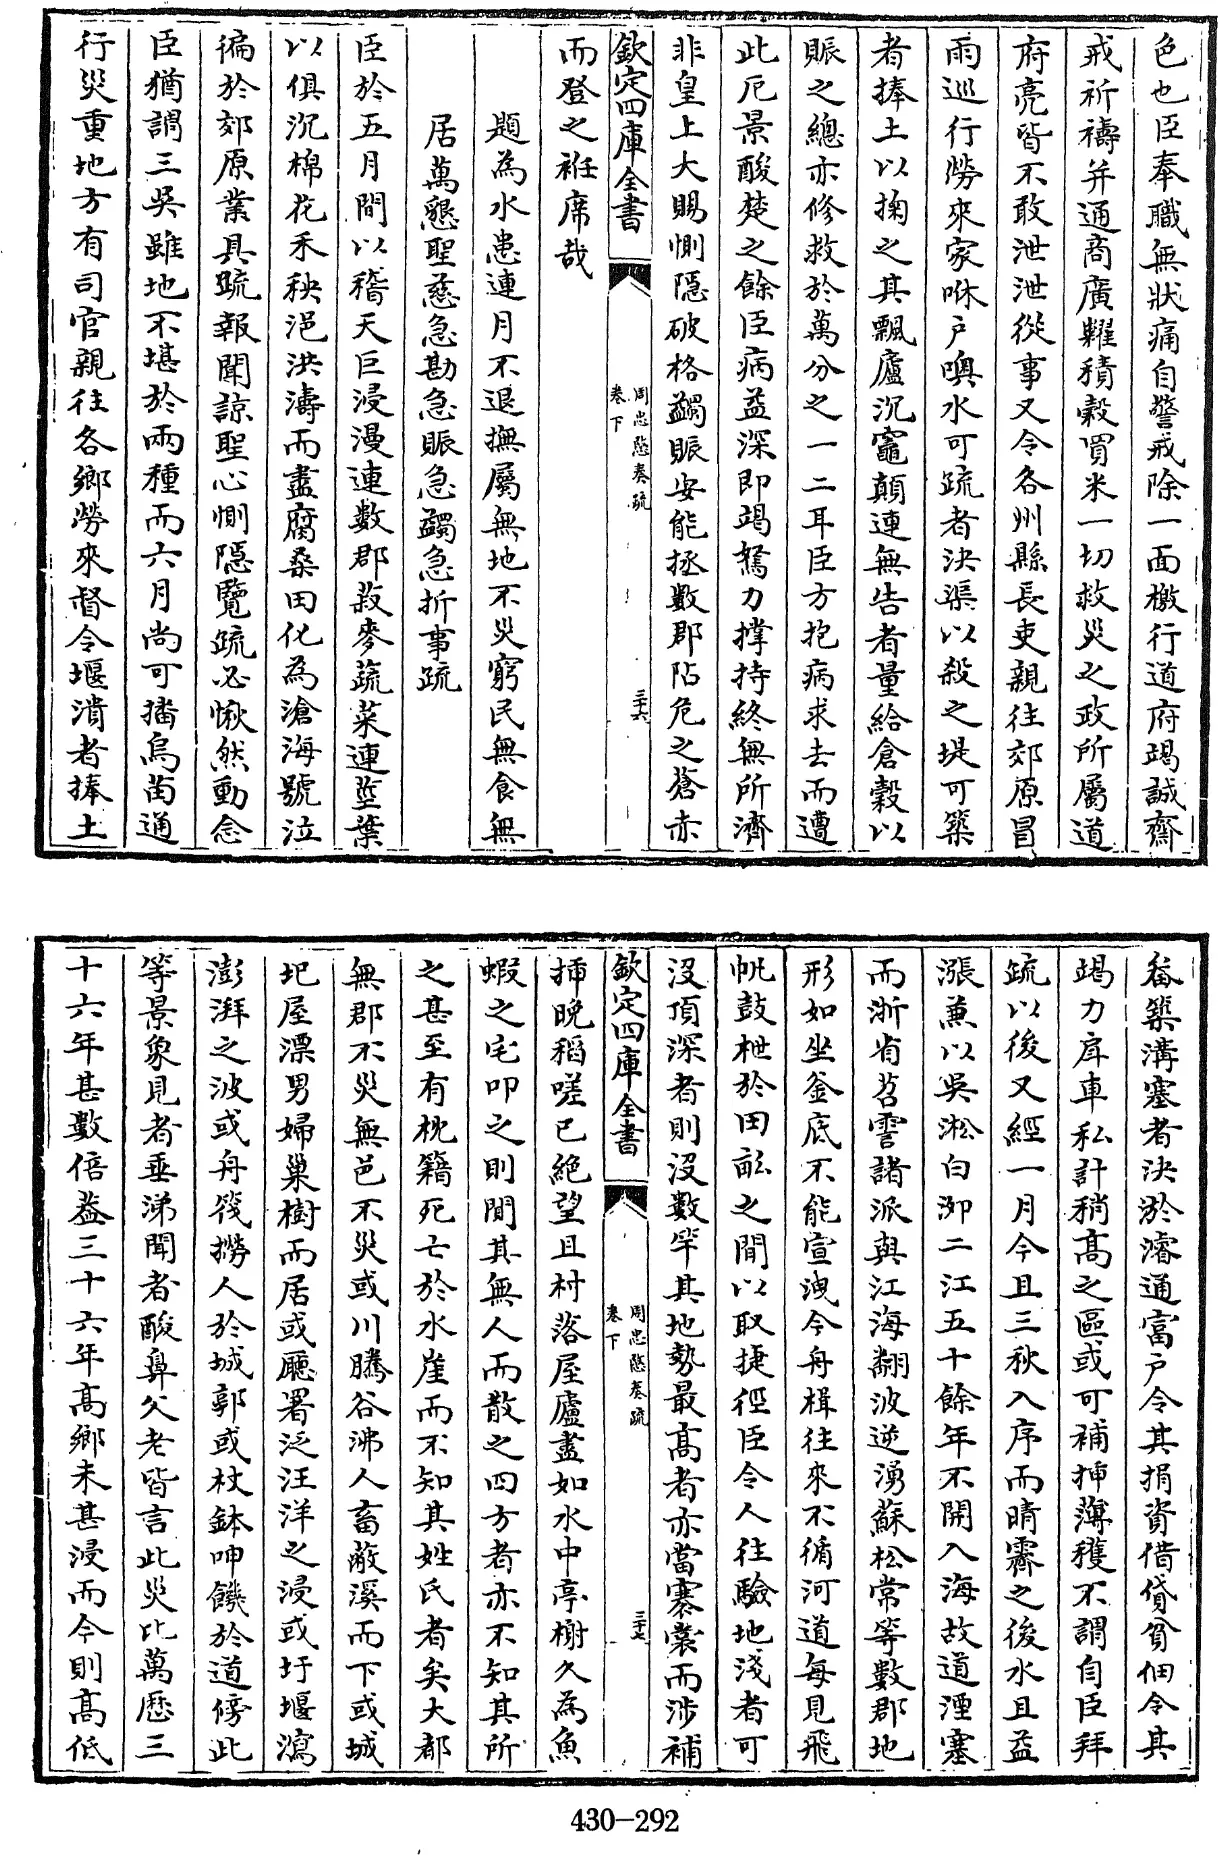 色也臣奉職無狀痛自警戒除一面檄行道府竭誠齋
戒祈禱并通商廣糶積穀買米一切救災之政所屬道
府亮皆不敢泄泄從事又令各州縣長吏親往郊原冒
雨巡行勞來家咻戶噢水可疏者決渠以殺之堤可築
者捧土以掬之其飄廬沉竈顛連無告者量給倉穀以
賑之總亦修救於萬分之一二耳臣方抱病求去而遭
此厄景酸楚之餘臣病益深即竭駑力撐持終無所濟
非皇上大賜惻隱破格蠲賑安能拯數郡阽危之蒼赤
欽定四庫全書
周忠愍奏疏
卷下
三十六
而登之袵席哉
題為水患連月不退撫屬無地不災窮民無食無
居萬懇聖慈急勘急賑急蠲急折事疏
臣於五月間以稽天巨浸漫連數郡菽麥蔬菜連莖葉
以俱沉棉花禾秧浥洪濤而盡腐桑田化為滄海號泣
徧於郊原業具疏報聞諒聖心惻隱覽疏必愀然動念
臣猶謂三吳雖地不堪於兩種而六月尚可播烏苗通
行災重地方有司官親往各鄉勞來督令堰潰者捧土
畚築溝塞者決淤濬通富戶令其捐資借貸貧佃令其
竭力戽車私計稍高之區或可補揷薄穫不謂自臣拜
疏以後又經一月今且三秋入序而晴霽之後水且益
漲兼以吳淞白泖二江五十餘年不開入海故道湮塞
而浙省苕霅諸派與江海翻波逆湧蘇松常等數郡地
形如坐釜底不能宣洩今舟楫往來不循河道每見飛
帆鼓枻於田畝之間以取捷徑臣令人往驗地淺者可
沒頂深者則沒數竿其地勢最高者亦當褰裳而涉補
欽定四庫全書
周忠愍奏疏
卷下
三十七
揷晚稻嗟已絕望且村落屋廬盡如水中亭榭久為魚
蝦之宅叩之則閴其無人而散之四方者亦不知其所
之甚至有枕籍死亡於水崖而不知其姓氏者矣大都
無郡不災無邑不災或川騰谷沸人畜蔽溪而下或城
圯屋漂男婦巢樹而居或廳署泛汪洋之浸或圩堰瀉
澎湃之波或舟筏撈人於城郭或杖鉢呻饑於道傍此
等景象見者垂涕聞者酸鼻父老皆言此災比萬歷三
十六年甚數倍蓋三十六年高鄉未甚浸而今則高低
430-292